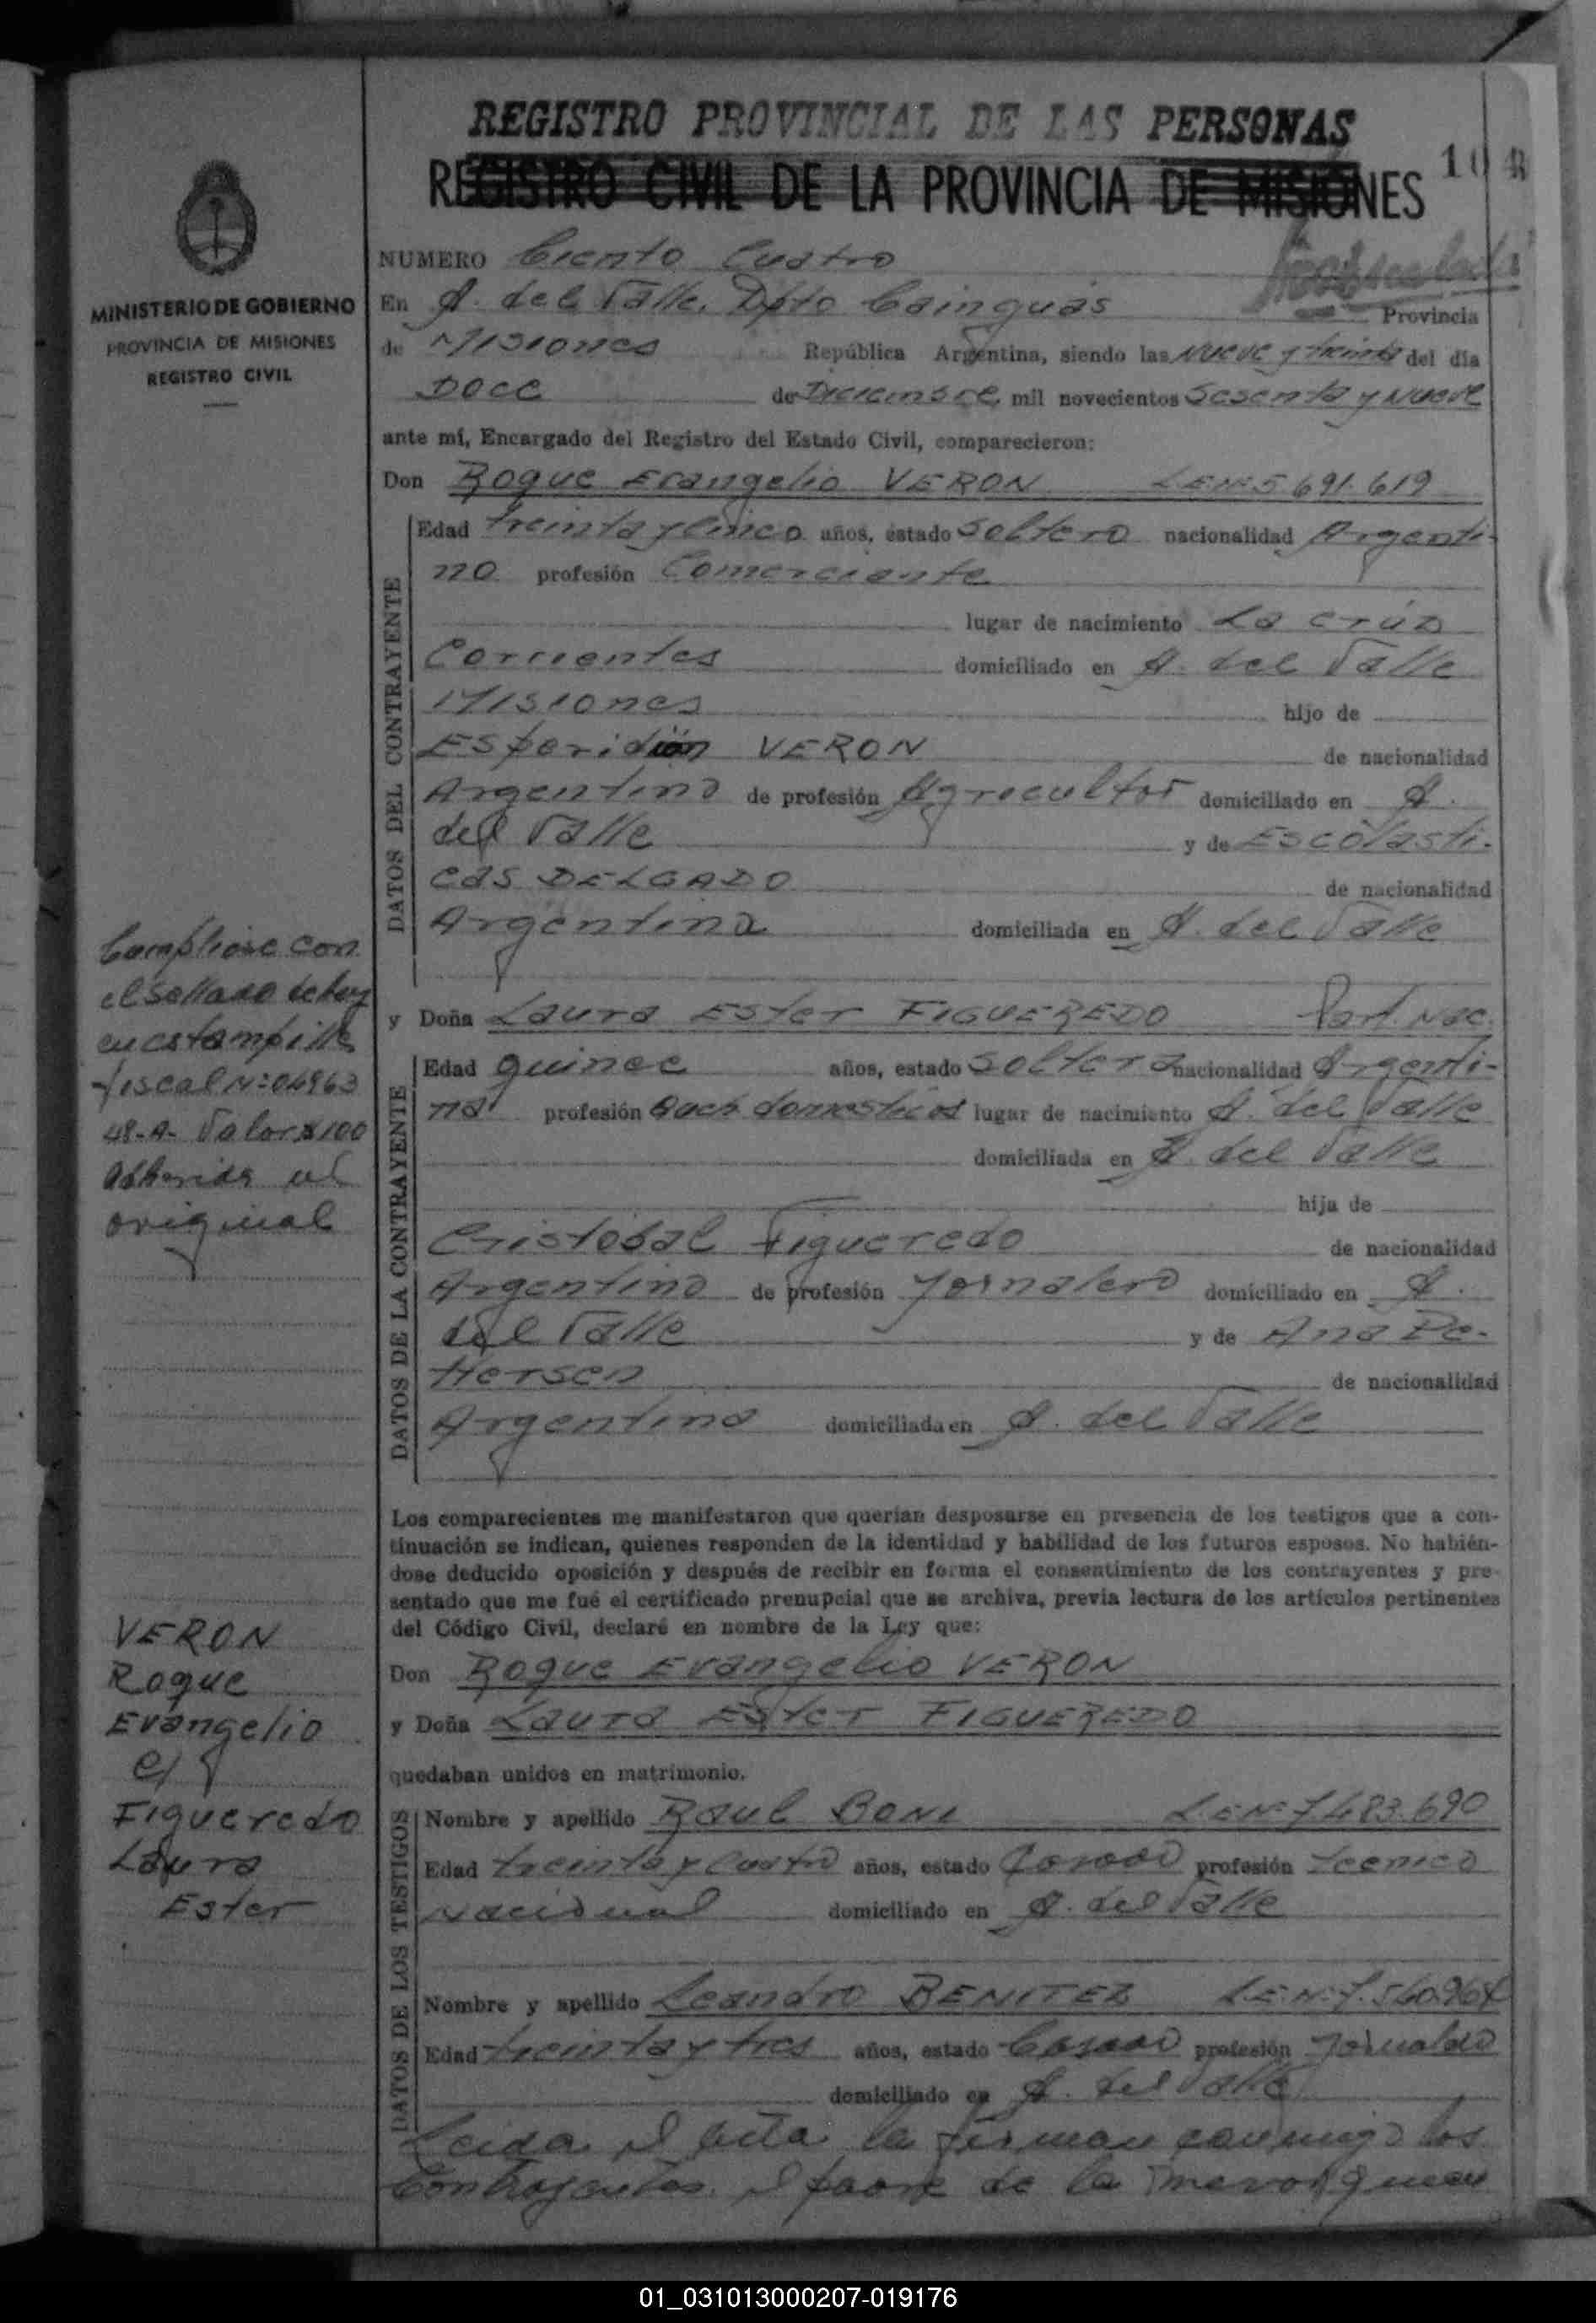 REGISTRO PROVINCIAL DE LAS PERSONAS
REGISTRO CIVIL DE LA PROVINCIA DE MISIONES
10
MINISTERIO DE GOBIERNO
PROVINCIA DE MISIONES
REGISTRO CIVIL
NUMERO Ciento Cuatro
En A. del Valle, Dpto Cainguás Provincia
de Misiones República Argentina, siendo las Nueve y treinta del día
Doce de Diciembre mil novecientos Sesenta y Nueve
ante mí, Encargado del Registro del Estado Civil, comparecieron:
Don Roque Evangelio VERON L.E.Nº 5.691.619
DATOS DEL CONTRAYENTE
Edad treinta y cinco años, estado Soltero nacionalidad Argenti-
no profesión Comerciante
lugar de nacimiento La Crúz
Corrientes domiciliado en A. del Valle
Misiones hijo de
Esperidión VERON de nacionalidad
Argentino de profesión Agricultor domiciliado en A.
del Valle y de Escolasti-
cas DELGADO de nacionalidad
Argentina domiciliada en A. del Valle
y Doña Laura Ester FIGUEREDO Part. Nac.
DATOS DE LA CONTRAYENTE
Edad quince años, estado Soltera nacionalidad Argenti-
na profesión Queh. domesticos lugar de nacimiento A. del Valle
domiciliada en A. del Valle
hija de
Cristóbal Figueredo de nacionalidad
Argentino de profesión Jornalero domiciliado en A.
del Valle y de Ana Pe-
Hersen de nacionalidad
Argentina domiciliada en A. del Valle
Los comparecientes me manifestaron que querían desposarse en presencia de los testigos que a con-
tinuación se indican, quienes responden de la identidad y habilidad de los futuros esposos. No habién-
dose deducido oposición y después de recibir en forma el consentimiento de los contrayentes y pre-
sentado que me fué el certificado prenupcial que se archiva, previa lectura de los artículos pertinentes
del Código Civil, declaré en nombre de la Ley que:
Don Roque Evangelio VERON
y Doña Laura Ester FIGUEREDO
quedaban unidos en matrimonio.
DATOS DE LOS TESTIGOS
Nombre y apellido Raul BONI L.E.Nº 7.483.690
Edad treinta y cuatro años, estado Casado profesión tecnico
Nacional domiciliado en A. del Valle
Nombre y apellido Leandro BENITEZ L.E.Nº 7.560.964
Edad treinta y tres años, estado Casado profesión Jornalero
domiciliado en A. del Valle
Leida el acta la firman conmigo los
Contrayentes, el padre de la menor quien
Cumpliose con
el sellado de ley
en estampilla
fiscal Nº 04963
48-A- Valor $ 100
adherida al
original
VERON
Roque
Evangelio
c/
Figueredo
Laura
Ester
01_031013000207-019176